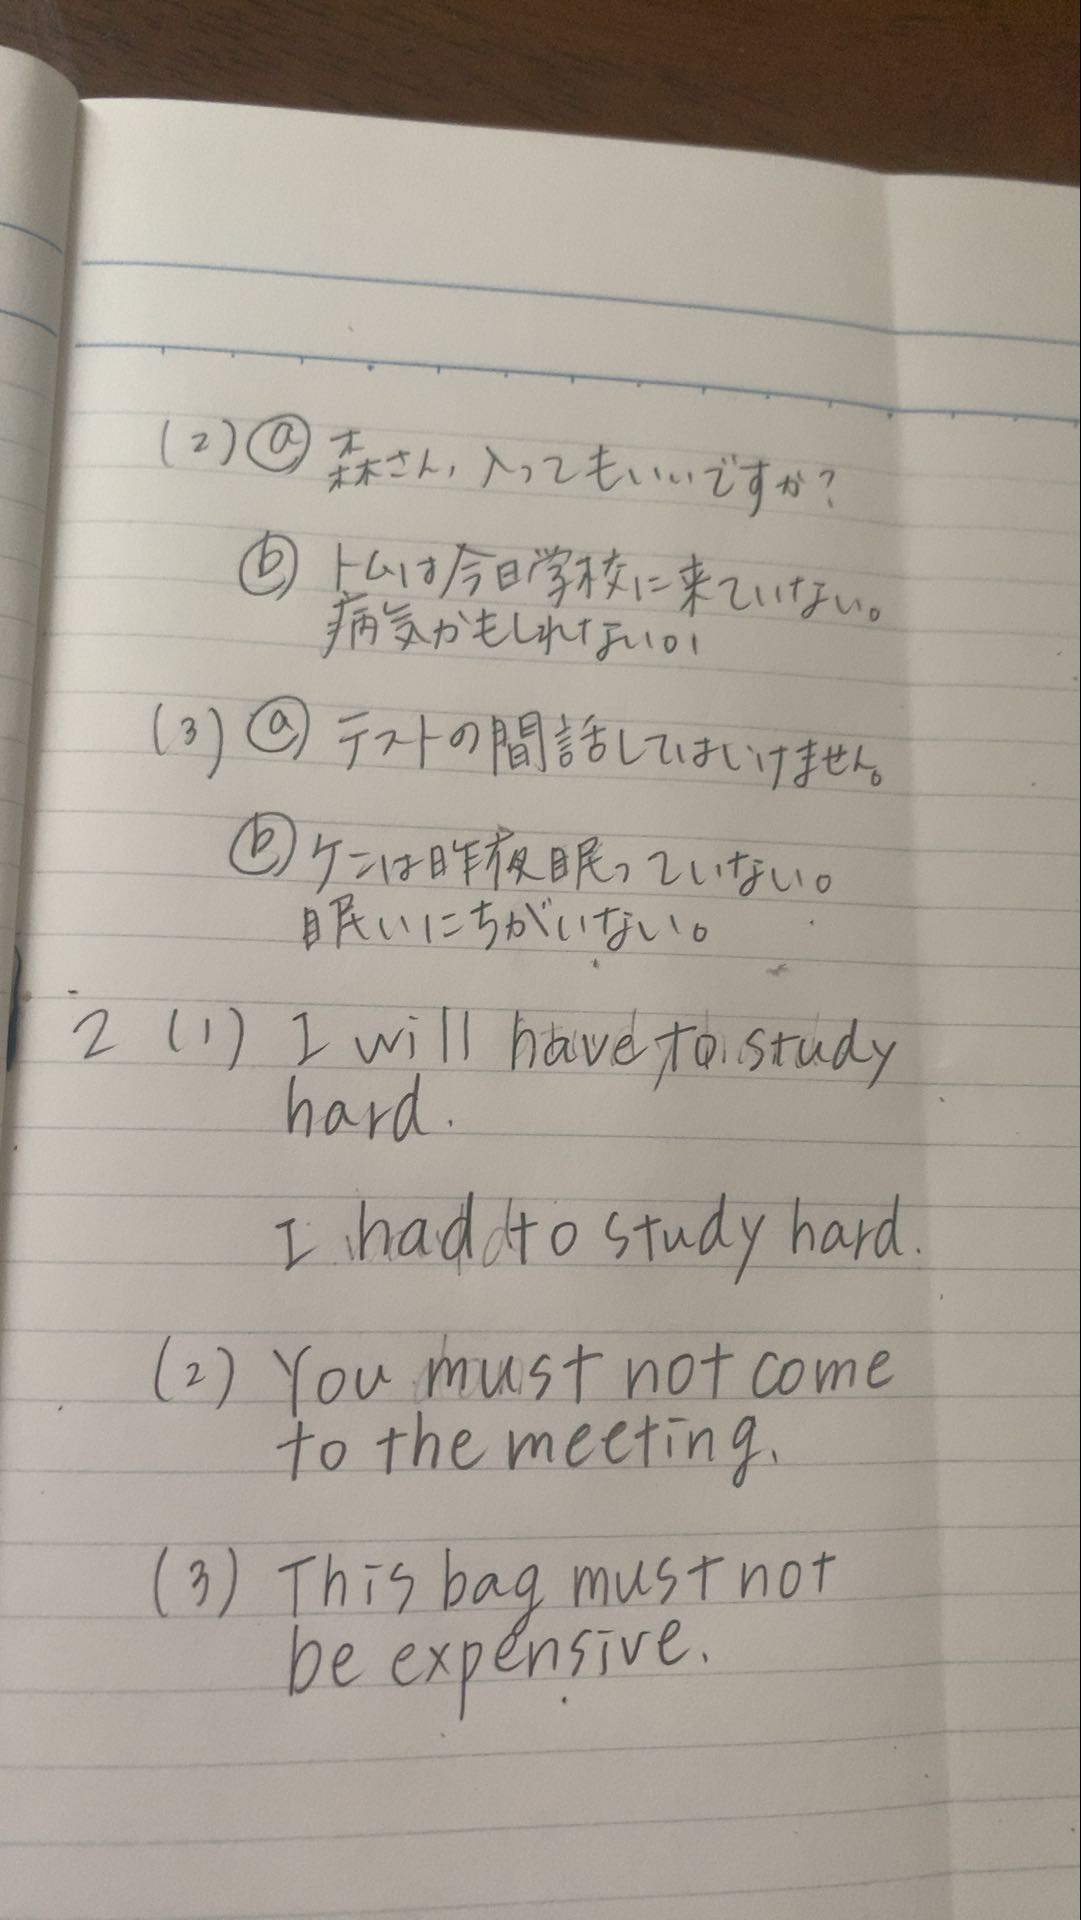 (2) ⓐ 森さん, 入ってもいいですか?
ⓑ トムは今日学校に来ていない。
病気かもしれない。
(3) ⓐ テストの間話してはいけません。
ⓑ ケンは昨夜眠っていない。
眠いにちがいない。
2 (1) I will have to study
hard.
I had to study hard.
(2) You must not come
to the meeting.
(3) This bag must not
be expensive.